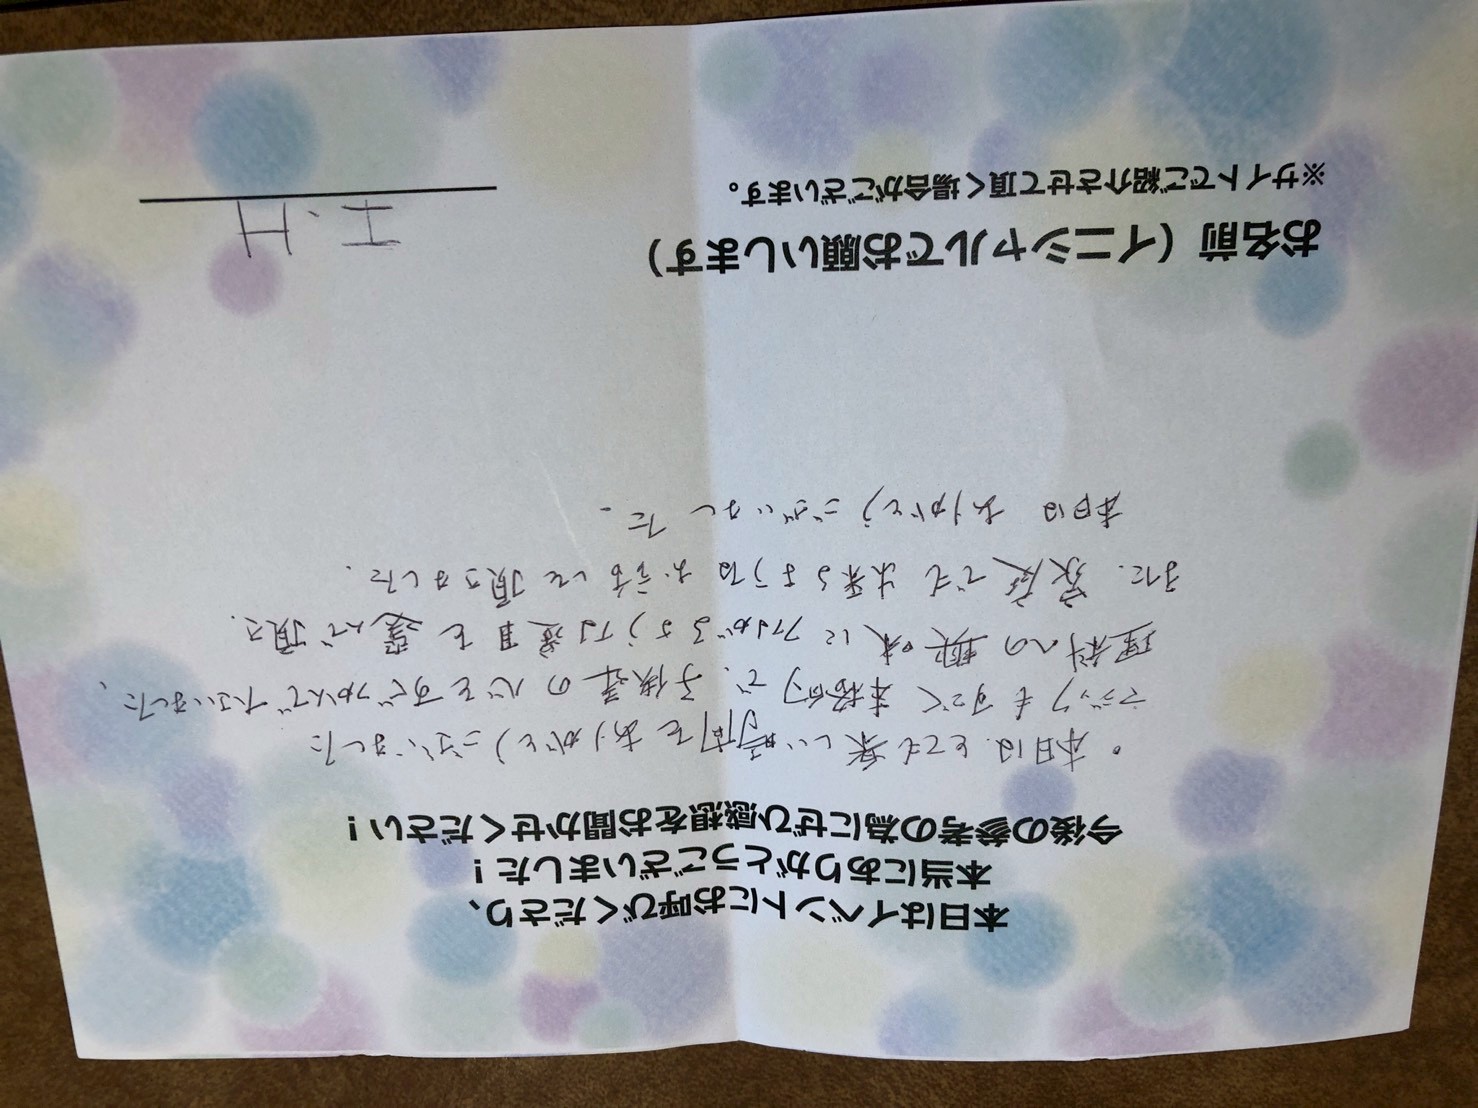 本日はイベントにお呼びくださり、
本当にありがとうございました！
今後の参考の為にぜひ感想をお聞かせください！
・本日は、とても楽しい時間をありがとうございました
マジックもすごく本格的で、子供達の心をすぐつかんで下さいました。
理科への興味につながるような道具を選んで頂き、
また、家庭でも出来るようなお話しも頂きました。
本日は ありがとうございました。
お名前（イニシャルでお願いします） I.H
※サイトでご紹介させて頂く場合がございます。